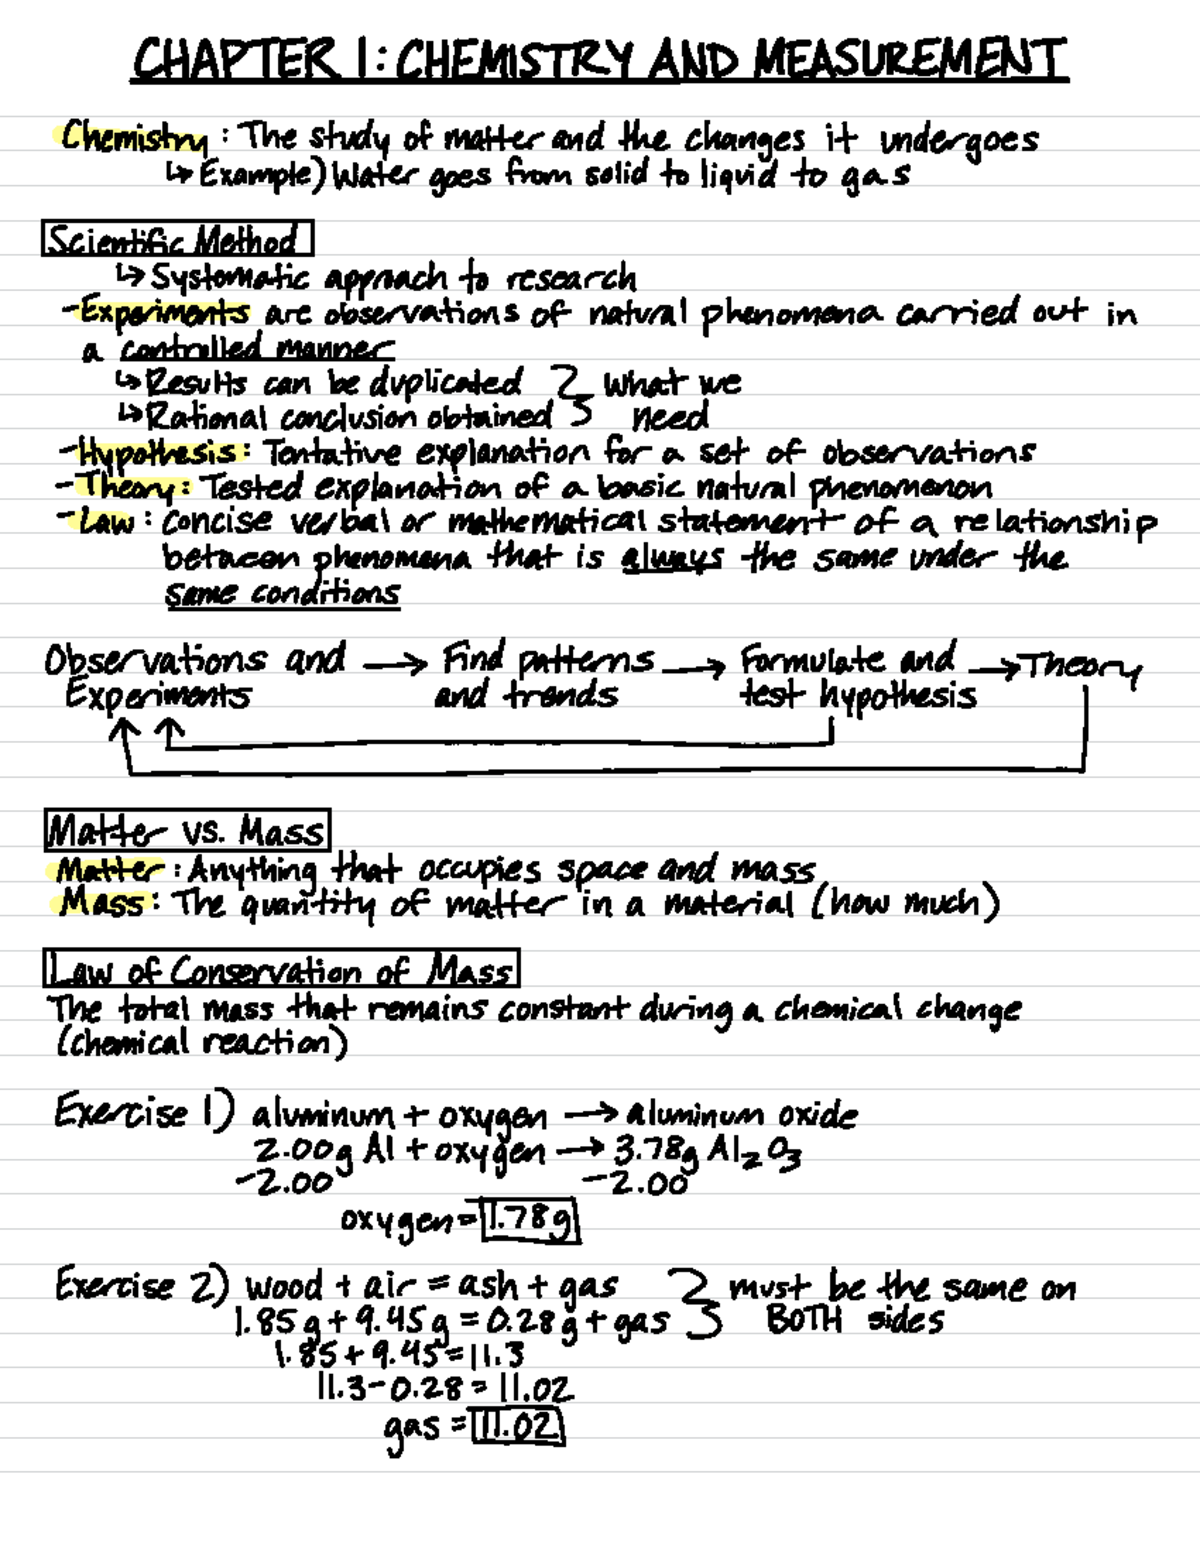 CHAPTER 1: CHEMISTRY AND MEASUREMENT
Chemistry: The study of matter and the changes it undergoes
↳ Example) Water goes from solid to liquid to gas
Scientific Method
↳ Systematic approach to research
- Experiments are observations of natural phenomena carried out in
a controlled manner
↳ Results can be duplicated } What we
↳ Rational conclusion obtained } need
- Hypothesis: Tentative explanation for a set of observations
- Theory: Tested explanation of a basic natural phenomenon
- Law: Concise verbal or mathematical statement of a relationship
between phenomena that is always the same under the
same conditions
Observations and → Find patterns → Formulate and → Theory
Experiments and trends test hypothesis
Matter vs. Mass
Matter: Anything that occupies space and mass
Mass: The quantity of matter in a material (how much)
Law of Conservation of Mass
The total mass that remains constant during a chemical change
(chemical reaction)
Exercise 1) aluminum + oxygen → aluminum oxide
2.00g Al + oxygen → 3.78g Al₂O₃
-2.00 -2.00
oxygen = 1.78g
Exercise 2) wood + air = ash + gas } must be the same on
1.85g + 9.45g = 0.28g + gas } BOTH sides
1.85 + 9.45 = 11.3
11.3 - 0.28 = 11.02
gas = 11.02